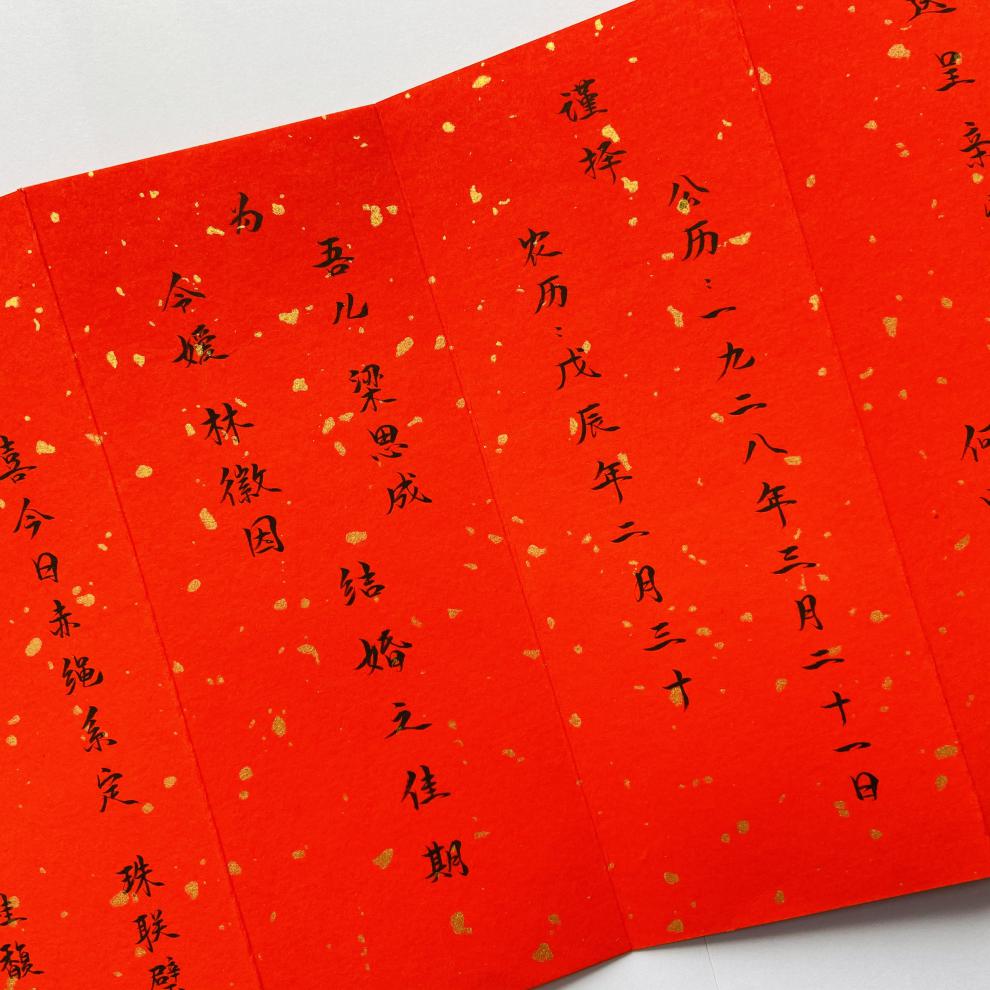 送呈 亲
何
谨择
公历：一九二八年三月二十一日
农历：戊辰年二月三十
为
吾儿 梁思成
令媛 林徽因
结婚之佳期
喜今日赤绳系定 珠联璧
馥